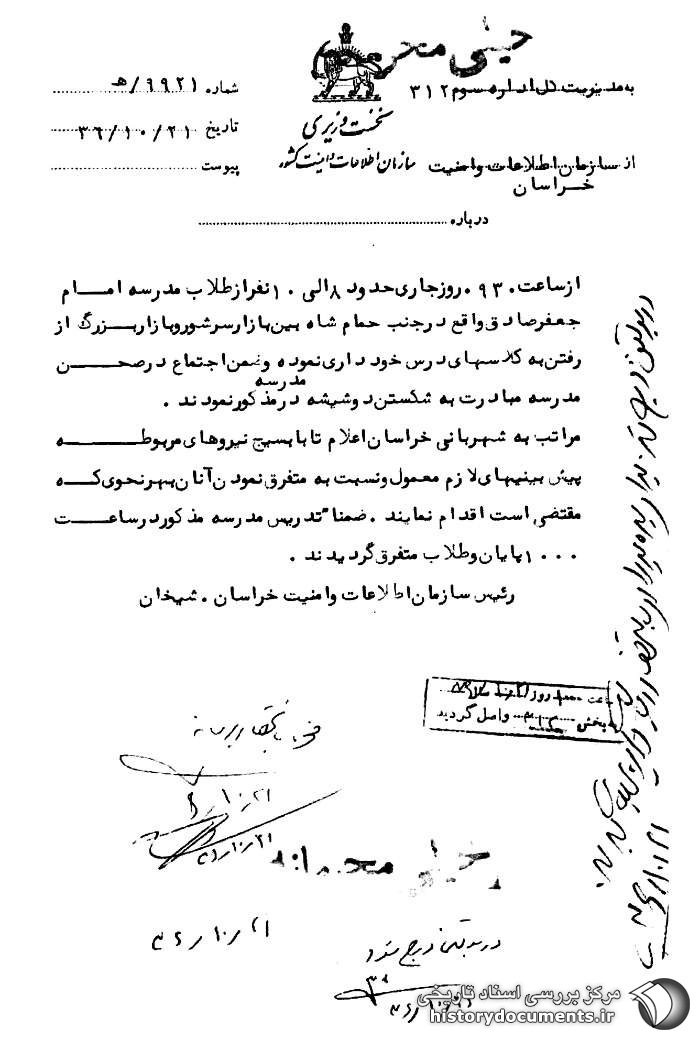 خیلی محرمانه
به مدیریت کل اداره سوم ۳۱۲
شماره ۹۹۲۱/هـ
نخست وزیری
تاریخ ۳۶/۱۰/۲۱
سازمان اطلاعات و امنیت کشور
از سازمان اطلاعات و امنیت
خراسان
پیوست
درباره
از ساعت ۰۹۳۰ روز جاری حدود ۸ الی ۱۰ نفر از طلاب مدرسه امام
جعفر صادق واقع در جنب حمام شاه بین بازار سرشور و بازار بزرگ از
رفتن به کلاسهای درس خود داری نموده و ضمن اجتماع در صحن
مدرسه مبادرت به شکستن دو شیشه در مدرسه مذکور نمودند .
مراتب به شهربانی خراسان اعلام تا با بسیج نیروهای مربوطه
پیش بینیهای لازم معمول و نسبت به متفرق نمودن آنان بهر نحوی که
مقتضی است اقدام نمایند . ضمنا" تدریس مدرسه مذکور در ساعت
۱۰۰۰ پایان و طلاب متفرق گردیدند .
رئیس سازمان اطلاعات و امنیت خراسان . شیخان
ساعت روز
به بخش ۳۱۲ واصل گردید
۲۱/۱۰/
۲۱/۱۰/۳۶
خیلی محرمانه
۲۱/۱۰/۳۶
در بولتن درج شود
مرکز بررسی اسناد تاریخی
historydocuments.ir